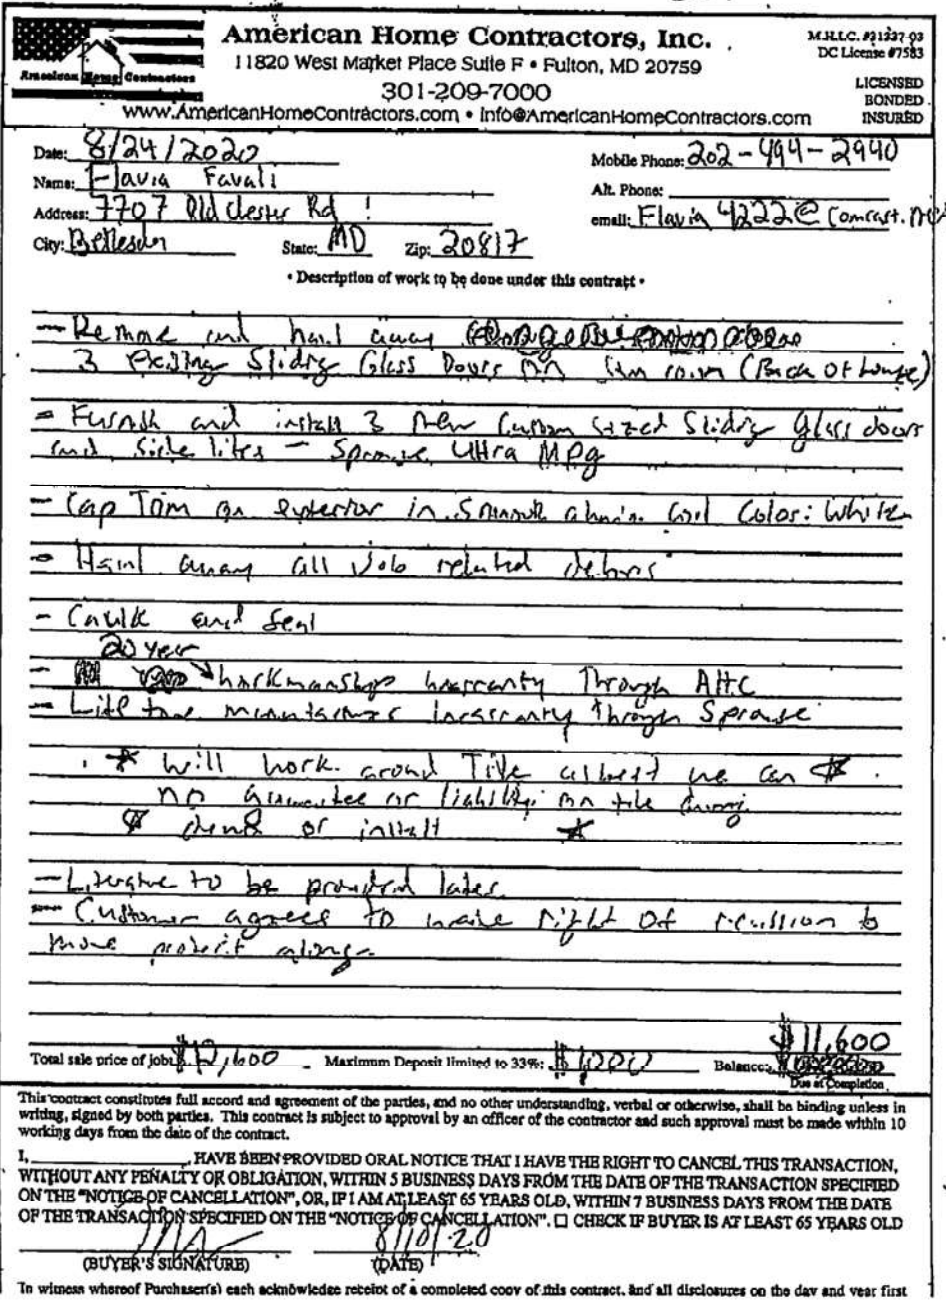 American Home Contractors
American Home Contractors, Inc.
11820 West Market Place Suite F • Fulton, MD 20759
301-209-7000
www.AmericanHomeContractors.com • Info@AmericanHomeContractors.com
M.H.I.C. #31237-03
DC License #7583
LICENSED
BONDED
INSURED
Date: 8/24/2020
Mobile Phone: 202-494-2940
Name: Flavia Favali
Alt. Phone:
Address: 7707 Old Chester Rd
email: Flavia4222@Comcast.net
City: Bethesda State: MD Zip: 20817
• Description of work to be done under this contract •
- Remove and haul away
3 existing Sliding Glass Doors on Sun room (Back of house)
- Furnish and install 3 new Custom sized Sliding Glass doors
and Side lites - Ultra
- Cap Trim on exterior in Smooth Color: White
- Haul away all Job related debris
- Caulk and Seal
20 year
- Workmanship warranty Through AHC
- Life time manufacturer warranty through
* Will work around Tile as best we can *
no guarantee or liability on tile during
* demo or install *
- Literature to be provided later
- Customer agrees to waive right of recission to
move project along.
$11,600
Total sale price of job: $12,600 Maximum Deposit limited to 33%: $1,000 Balance:
Due at Completion
This contract constitutes full accord and agreement of the parties, and no other understanding, verbal or otherwise, shall be binding unless in
writing, signed by both parties. This contract is subject to approval by an officer of the contractor and such approval must be made within 10
working days from the date of the contract.
I, , HAVE BEEN PROVIDED ORAL NOTICE THAT I HAVE THE RIGHT TO CANCEL THIS TRANSACTION,
WITHOUT ANY PENALTY OR OBLIGATION, WITHIN 5 BUSINESS DAYS FROM THE DATE OF THE TRANSACTION SPECIFIED
ON THE "NOTICE OF CANCELLATION", OR, IF I AM AT LEAST 65 YEARS OLD, WITHIN 7 BUSINESS DAYS FROM THE DATE
OF THE TRANSACTION SPECIFIED ON THE "NOTICE OF CANCELLATION". ☐ CHECK IF BUYER IS AT LEAST 65 YEARS OLD
(BUYER'S SIGNATURE) (DATE)
In witness whereof Purchaser(s) each acknowledge receipt of a completed copy of this contract, and all disclosures on the day and year first